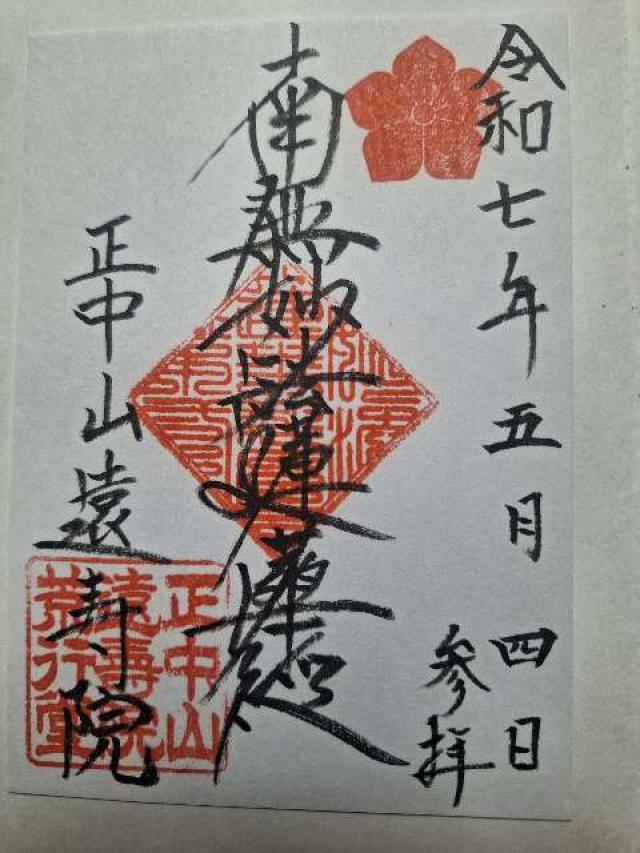 令和七年五月四日
参拝
南無妙法蓮華経
正中山遠寿院
正中山
遠壽院
荒行堂